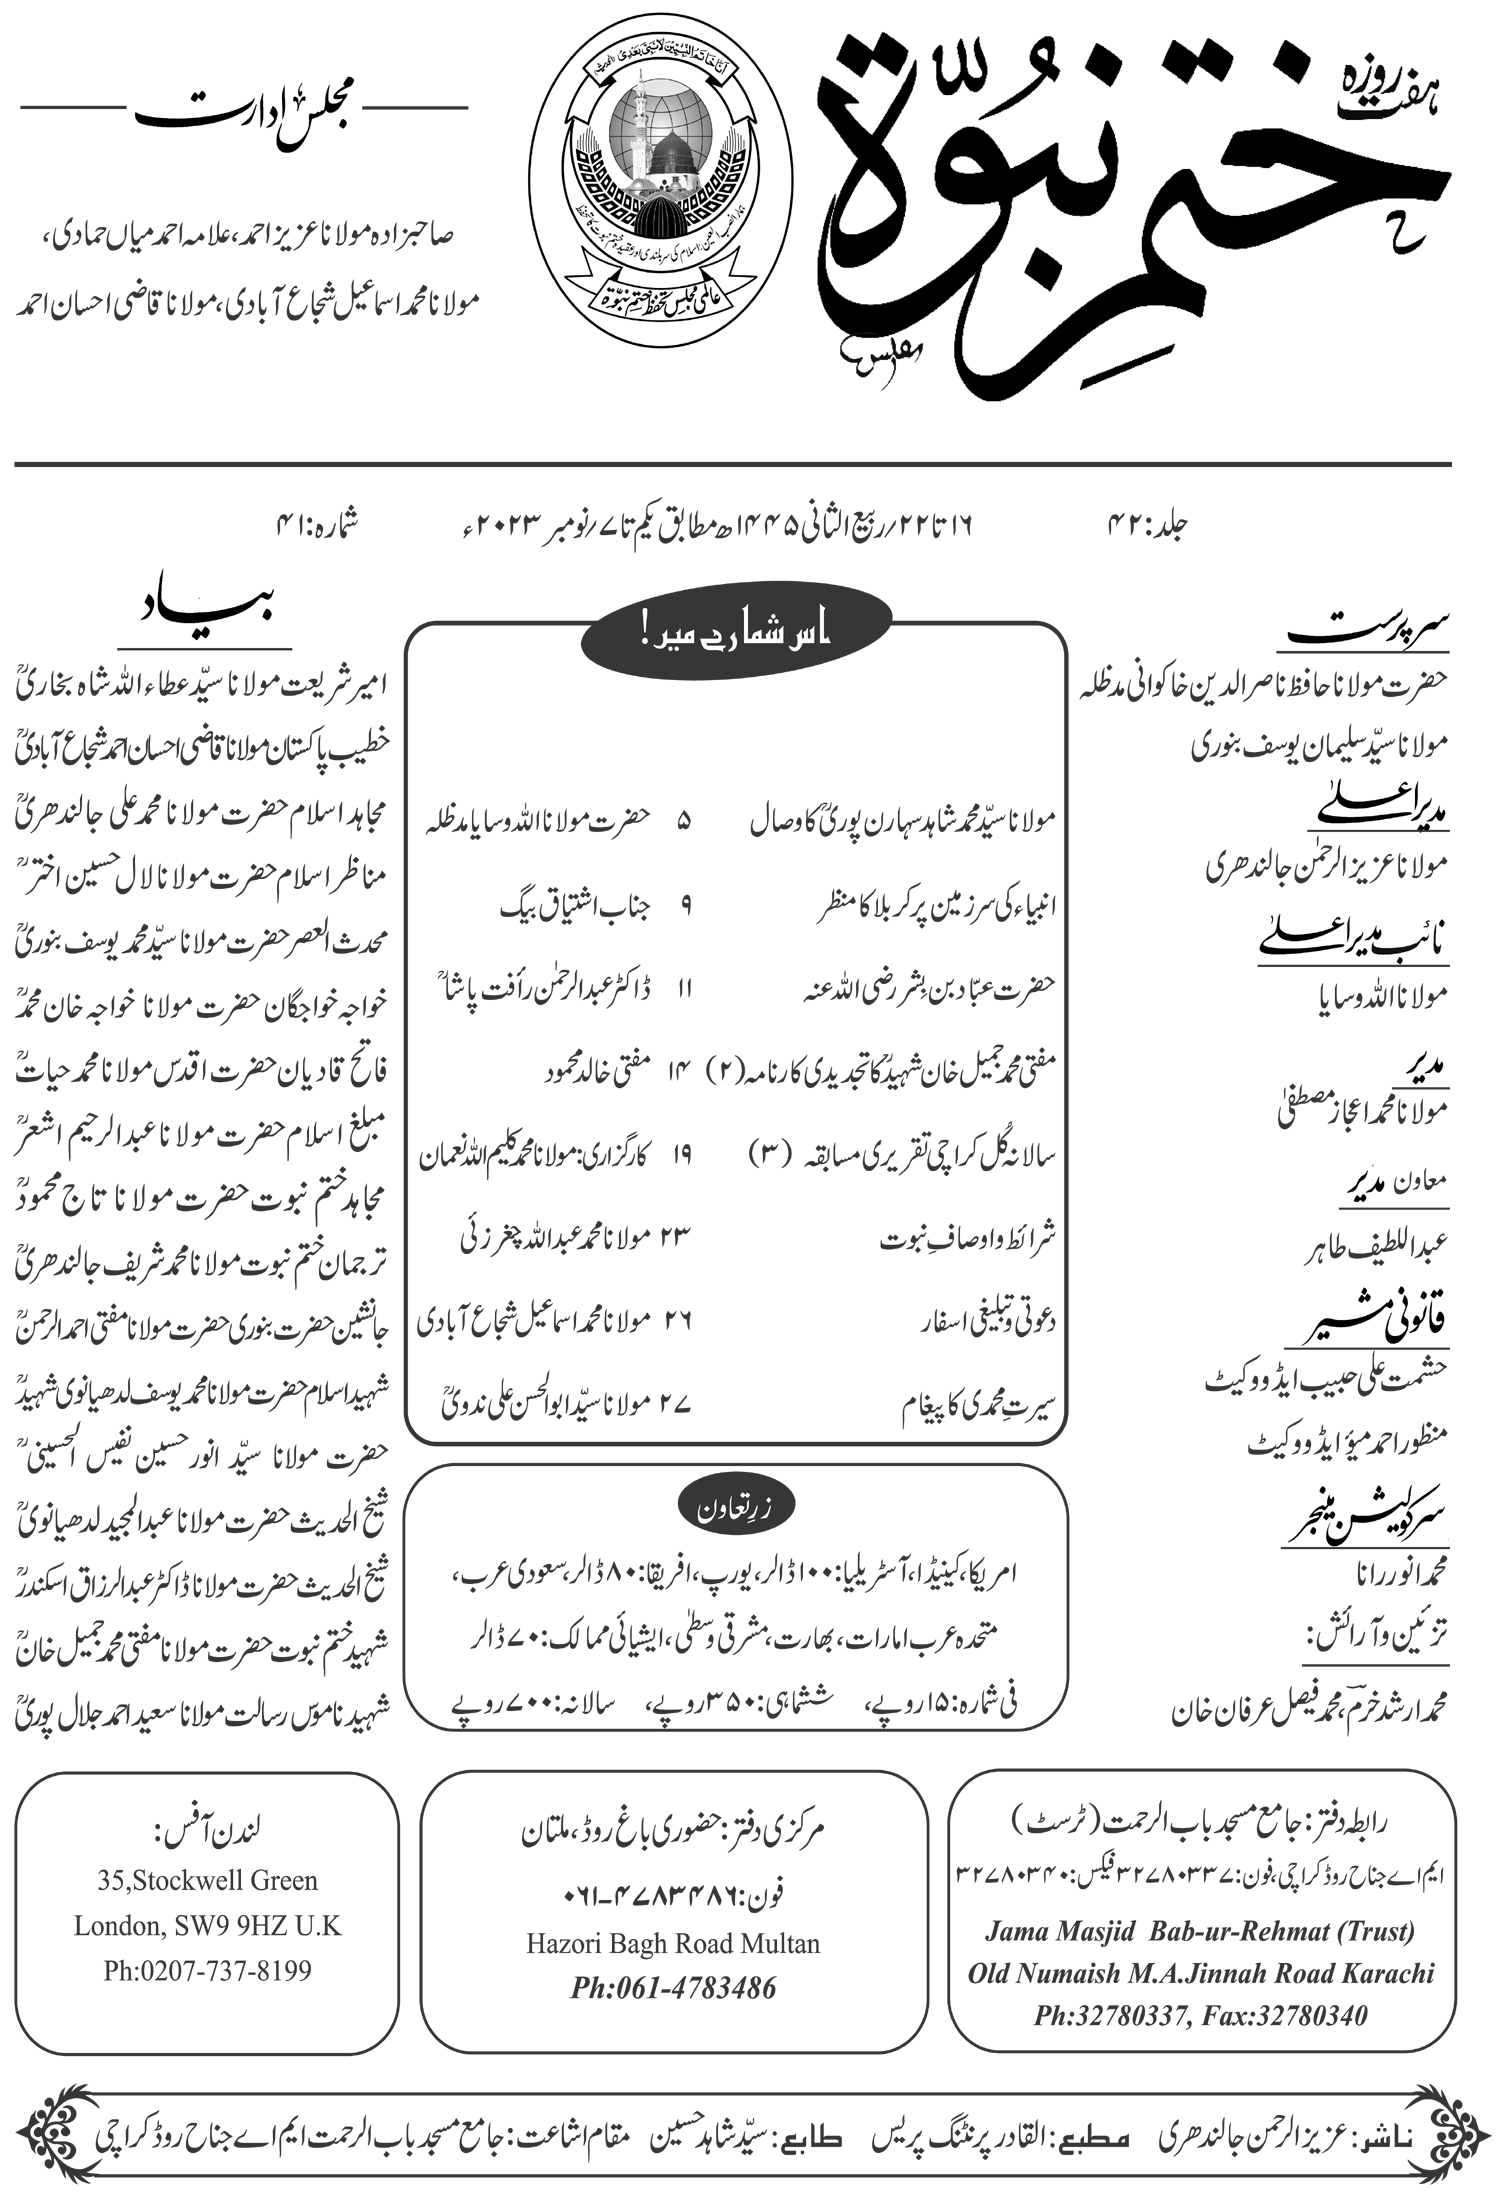 ہفت روزہ
ختم نبوّة
انا خاتم النبیین لا نبی بعدی
عالمی مجلس تحفظ ختم نبوّة
مجلس ادارت
صاحبزادہ مولانا عزیز احمد، علامہ احمد میاں حمادی،
مولانا محمد اسماعیل شجاع آبادی، مولانا قاضی احسان احمد
جلد: ۴۲
۱۶ تا ۲۲؍ ربیع الثانی ۱۴۴۵ھ مطابق یکم تا ۷؍ نومبر ۲۰۲۳ء
شمارہ: ۴۱
سرپرست
حضرت مولانا حافظ ناصر الدین خاکوانی مدظلہ
مولانا سیّد سلیمان یوسف بنوری
مدیر اعلےٰ
مولانا عزیز الرحمٰن جالندھری
نائب مدیر اعلےٰ
مولانا اللہ وسایا
مدیر
مولانا محمد اعجاز مصطفیٰ
معاون مدیر
عبداللطیف طاہر
قانونی مشیر
حشمت علی حبیب ایڈووکیٹ
منظور احمد میؤ ایڈووکیٹ
سرکولیشن مینجر
محمد انور رانا
تزئین و آرائش:
محمد ارشد خرم، محمد فیصل عرفان خان
اس شمارے میں!
مولانا سیّد محمد شاہد سہارن پوریؒ کا وصال ۵ حضرت مولانا اللہ وسایا مدظلہ
انبیاء کی سرزمین پر کربلا کا منظر ۹ جناب اشتیاق بیگ
حضرت عبّاد بن بِشر رضی اللہ عنہ ۱۱ ڈاکٹر عبدالرحمٰن رأفت پاشاؒ
مفتی محمد جمیل خان شہیدؒ کا تجدیدی کارنامہ (۲) ۱۴ مفتی خالد محمود
سالانہ کُل کراچی تقریری مسابقہ (۳) ۱۹ کارگزاری: مولانا محمد کلیم اللہ نعمان
شرائط و اوصافِ نبوت ۲۳ مولانا محمد عبداللہ چغرزئی
دعوتی و تبلیغی اسفار ۲۶ مولانا محمد اسماعیل شجاع آبادی
سیرتِ محمدی کا پیغام ۲۷ مولانا سیّد ابوالحسن علی ندویؒ
زرِتعاون
امریکا، کینیڈا، آسٹریلیا: ۱۰۰ ڈالر، یورپ، افریقا: ۸۰ ڈالر، سعودی عرب،
متحدہ عرب امارات، بھارت، مشرقِ وسطیٰ، ایشیائی ممالک: ۷۰ ڈالر
فی شمارہ: ۱۵ روپے، ششماہی: ۳۵۰ روپے، سالانہ: ۷۰۰ روپے
بیاد
امیر شریعت مولانا سیّد عطاء اللہ شاہ بخاریؒ
خطیب پاکستان مولانا قاضی احسان احمد شجاع آبادیؒ
مجاہد اسلام حضرت مولانا محمد علی جالندھریؒ
مناظر اسلام حضرت مولانا لال حسین اخترؒ
محدث العصر حضرت مولانا سیّد محمد یوسف بنوریؒ
خواجہ خواجگان حضرت مولانا خواجہ خان محمدؒ
فاتح قادیان حضرت اقدس مولانا محمد حیاتؒ
مبلغ اسلام حضرت مولانا عبدالرحیم اشعرؒ
مجاہد ختم نبوت حضرت مولانا تاج محمودؒ
ترجمان ختم نبوت مولانا محمد شریف جالندھریؒ
جانشین حضرت بنوری حضرت مولانا مفتی احمد الرحمنؒ
شہید اسلام حضرت مولانا محمد یوسف لدھیانوی شہیدؒ
حضرت مولانا سیّد انور حسین نفیس الحسینیؒ
شیخ الحدیث حضرت مولانا عبدالمجید لدھیانویؒ
شیخ الحدیث حضرت مولانا ڈاکٹر عبدالرزاق اسکندرؒ
شہید ختم نبوت حضرت مولانا مفتی محمد جمیل خانؒ
شہید ناموس رسالت مولانا سعید احمد جلال پوریؒ
رابطہ دفتر: جامع مسجد باب الرحمت (ٹرسٹ)
ایم اے جناح روڈ کراچی، فون: ۳۲۷۸۰۳۳۷ فیکس: ۳۲۷۸۰۳۴۰
Jama Masjid Bab-ur-Rehmat (Trust)
Old Numaish M.A.Jinnah Road Karachi
Ph:32780337, Fax:32780340
مرکزی دفتر: حضوری باغ روڈ، ملتان
فون: ۰۶۱-۴۷۸۳۴۸۶
Hazori Bagh Road Multan
Ph:061-4783486
لندن آفس:
35,Stockwell Green
London, SW9 9HZ U.K
Ph:0207-737-8199
ناشر: عزیز الرحمن جالندھری مطبع: القادر پرنٹنگ پریس طابع: سیّد شاہد حسین مقام اشاعت: جامع مسجد باب الرحمت ایم اے جناح روڈ کراچی